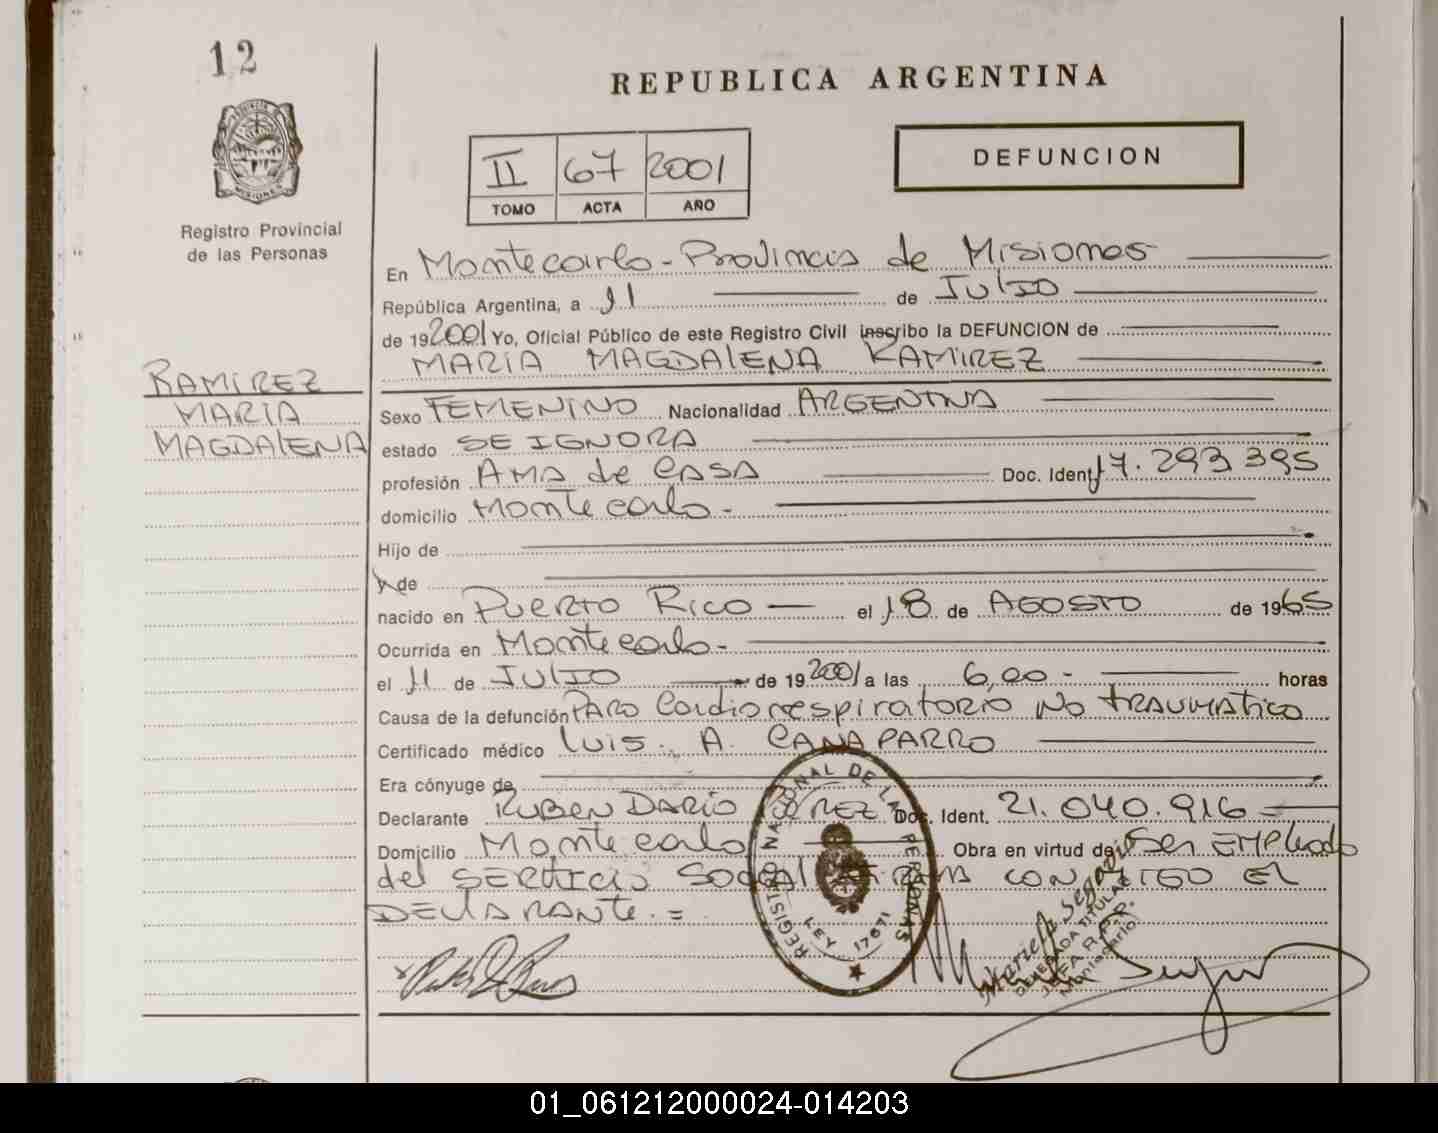 12
REPUBLICA ARGENTINA
DEFUNCION
II 67 2001
TOMO ACTA AÑO
PROVINCIA DE MISIONES
Registro Provincial
de las Personas
En Montecarlo - Provincia de Misiones
República Argentina, a 11 de Julio
de 192001 Yo, Oficial Público de este Registro Civil inscribo la DEFUNCION de
MARIA MAGDALENA RAMIREZ
RAMIREZ
MARIA
MAGDALENA
Sexo FEMENINO Nacionalidad ARGENTINA
estado SE IGNORA
profesión AMA de CASA Doc. Ident. 17.293.395
domicilio Montecarlo -
Hijo de
y de
nacido en Puerto Rico el 18 de AGOSTO de 1965
Ocurrida en Montecarlo -
el 11 de Julio de 192001 a las 6,00 - horas
Causa de la defunción PARO Cardiorrespiratorio No TRAUMATICO
Certificado médico LUIS. A. CANAPARRO
Era cónyuge de
Declarante RUBEN DARIO Doc. Ident. 21.040.916
Domicilio Montecarlo Obra en virtud de Ser EMPLeado
del SERVICIO SOCIAL CONMIGO EL
DECLARANTE. =
REGISTRO NACIONAL DE LAS PERSONAS
LEY 17671
Segovia
DELEGADA TITULAR
JEFA R.P.P.
Montecarlo
01_061212000024-014203